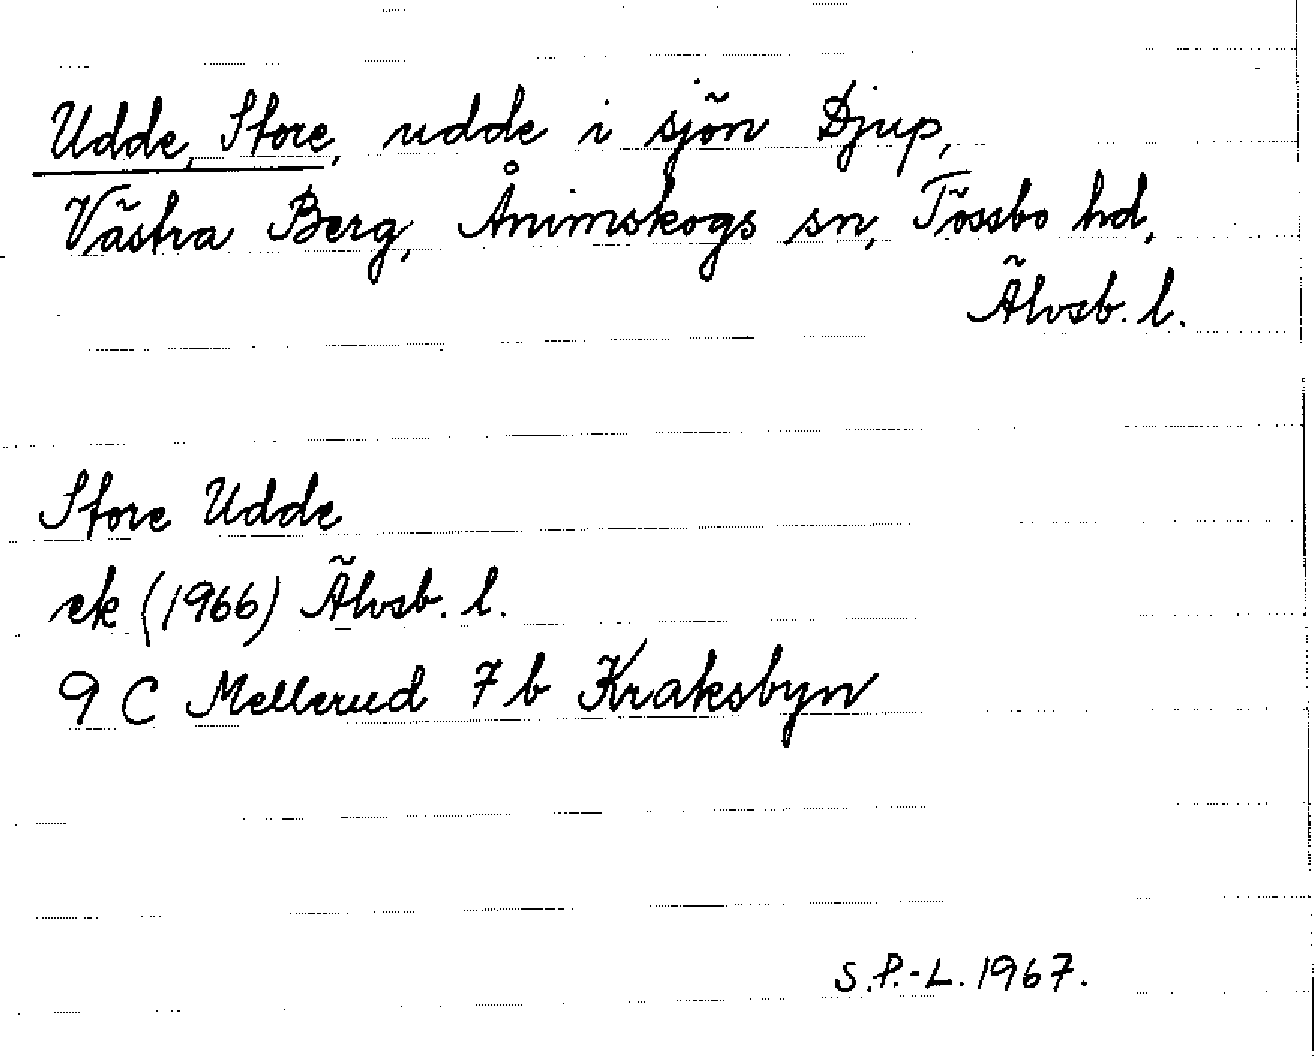 Udde, Store, udde i sjön Djup,
Västra Berg, Ånimskogs sn, Tössbo hd,
Älvsb. l.
Store Udde
ek (1966) Älvsb. l.
9 C Mellerud 7 b Kraksbyn
S.P.-L. 1967.